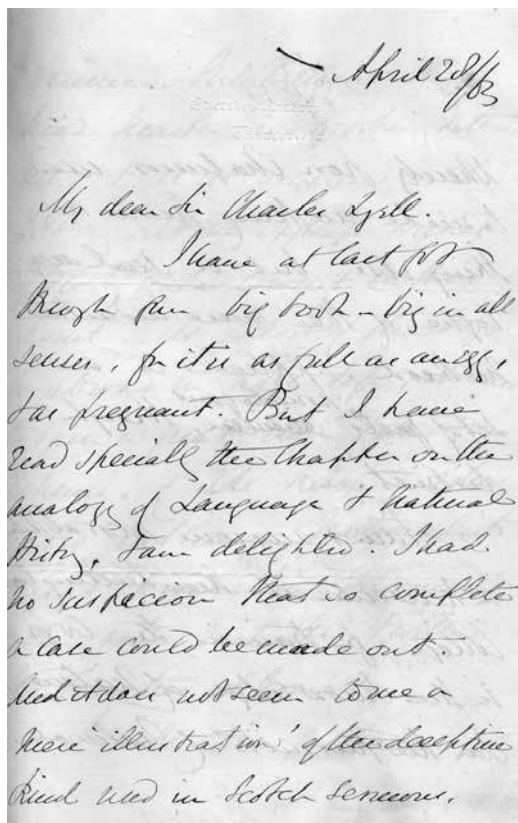 April 28/63
My dear Sir Charles Lyell.
I have at last got
through your big book – big in all
senses, for it is as full as an egg,
& as pregnant. But I have
read specially the Chapter on the
analogy of Language & Natural
History, & am delighted. I had
no suspicion that so complete
a case could be made out.
And it does not seem to me a
mere 'illustration' of the deceptive
kind used in Scotch sermons.